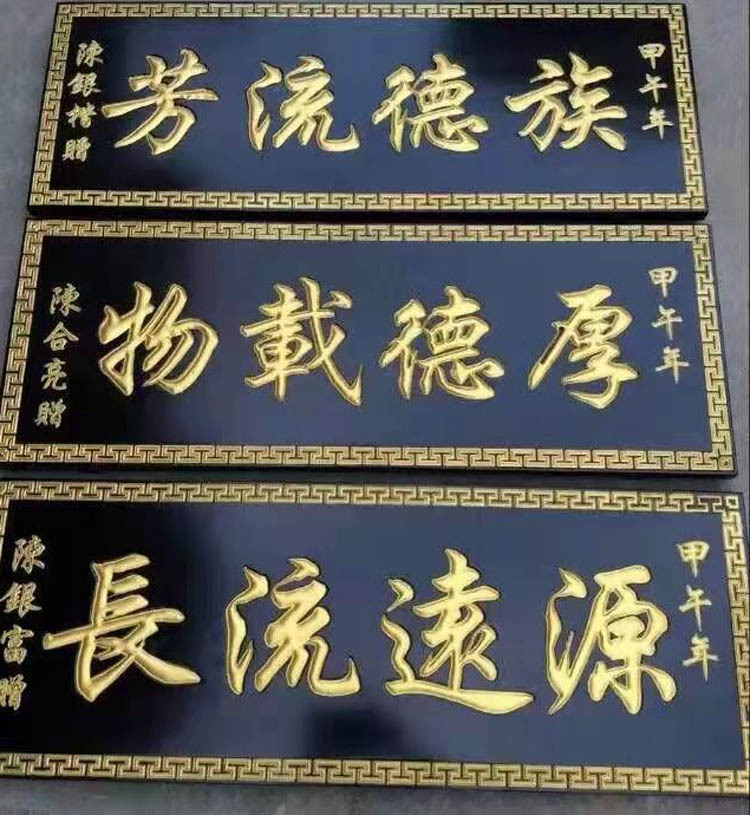 甲午年
族德流芳
陳銀楷贈
甲午年
厚德載物
陳合亮贈
甲午年
源遠流長
陳銀富贈